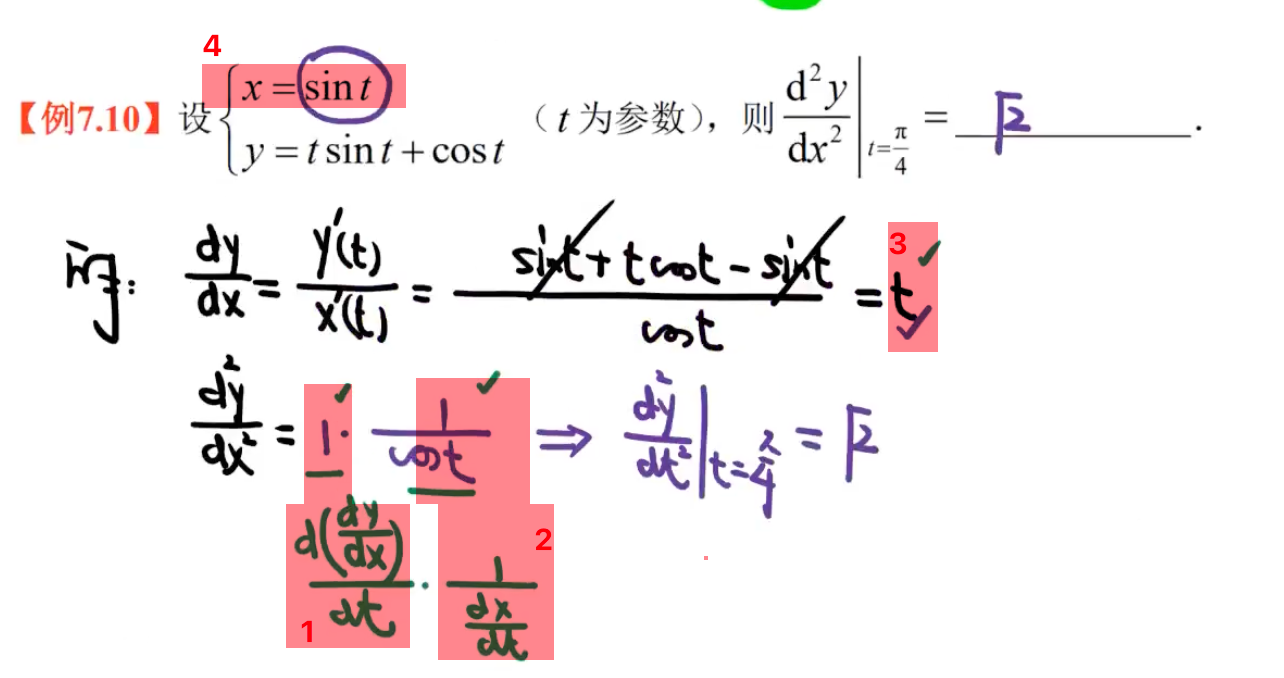 4
【例7.10】设 { x = sin t, y = t sin t + cos t （t 为参数），则 d²y/dx² |_{t=π/4} = √2 .
dy/dx = y'(t)/x'(t) = (sint + tcost - sint)/cost = t ✓ ✓ 3
d²y/dx² = 1 · 1/cost ⇒ d²y/dt² |_{t=π/4} = √2
d(dy/dx)/dt · 1/(dx/dt) 2
1